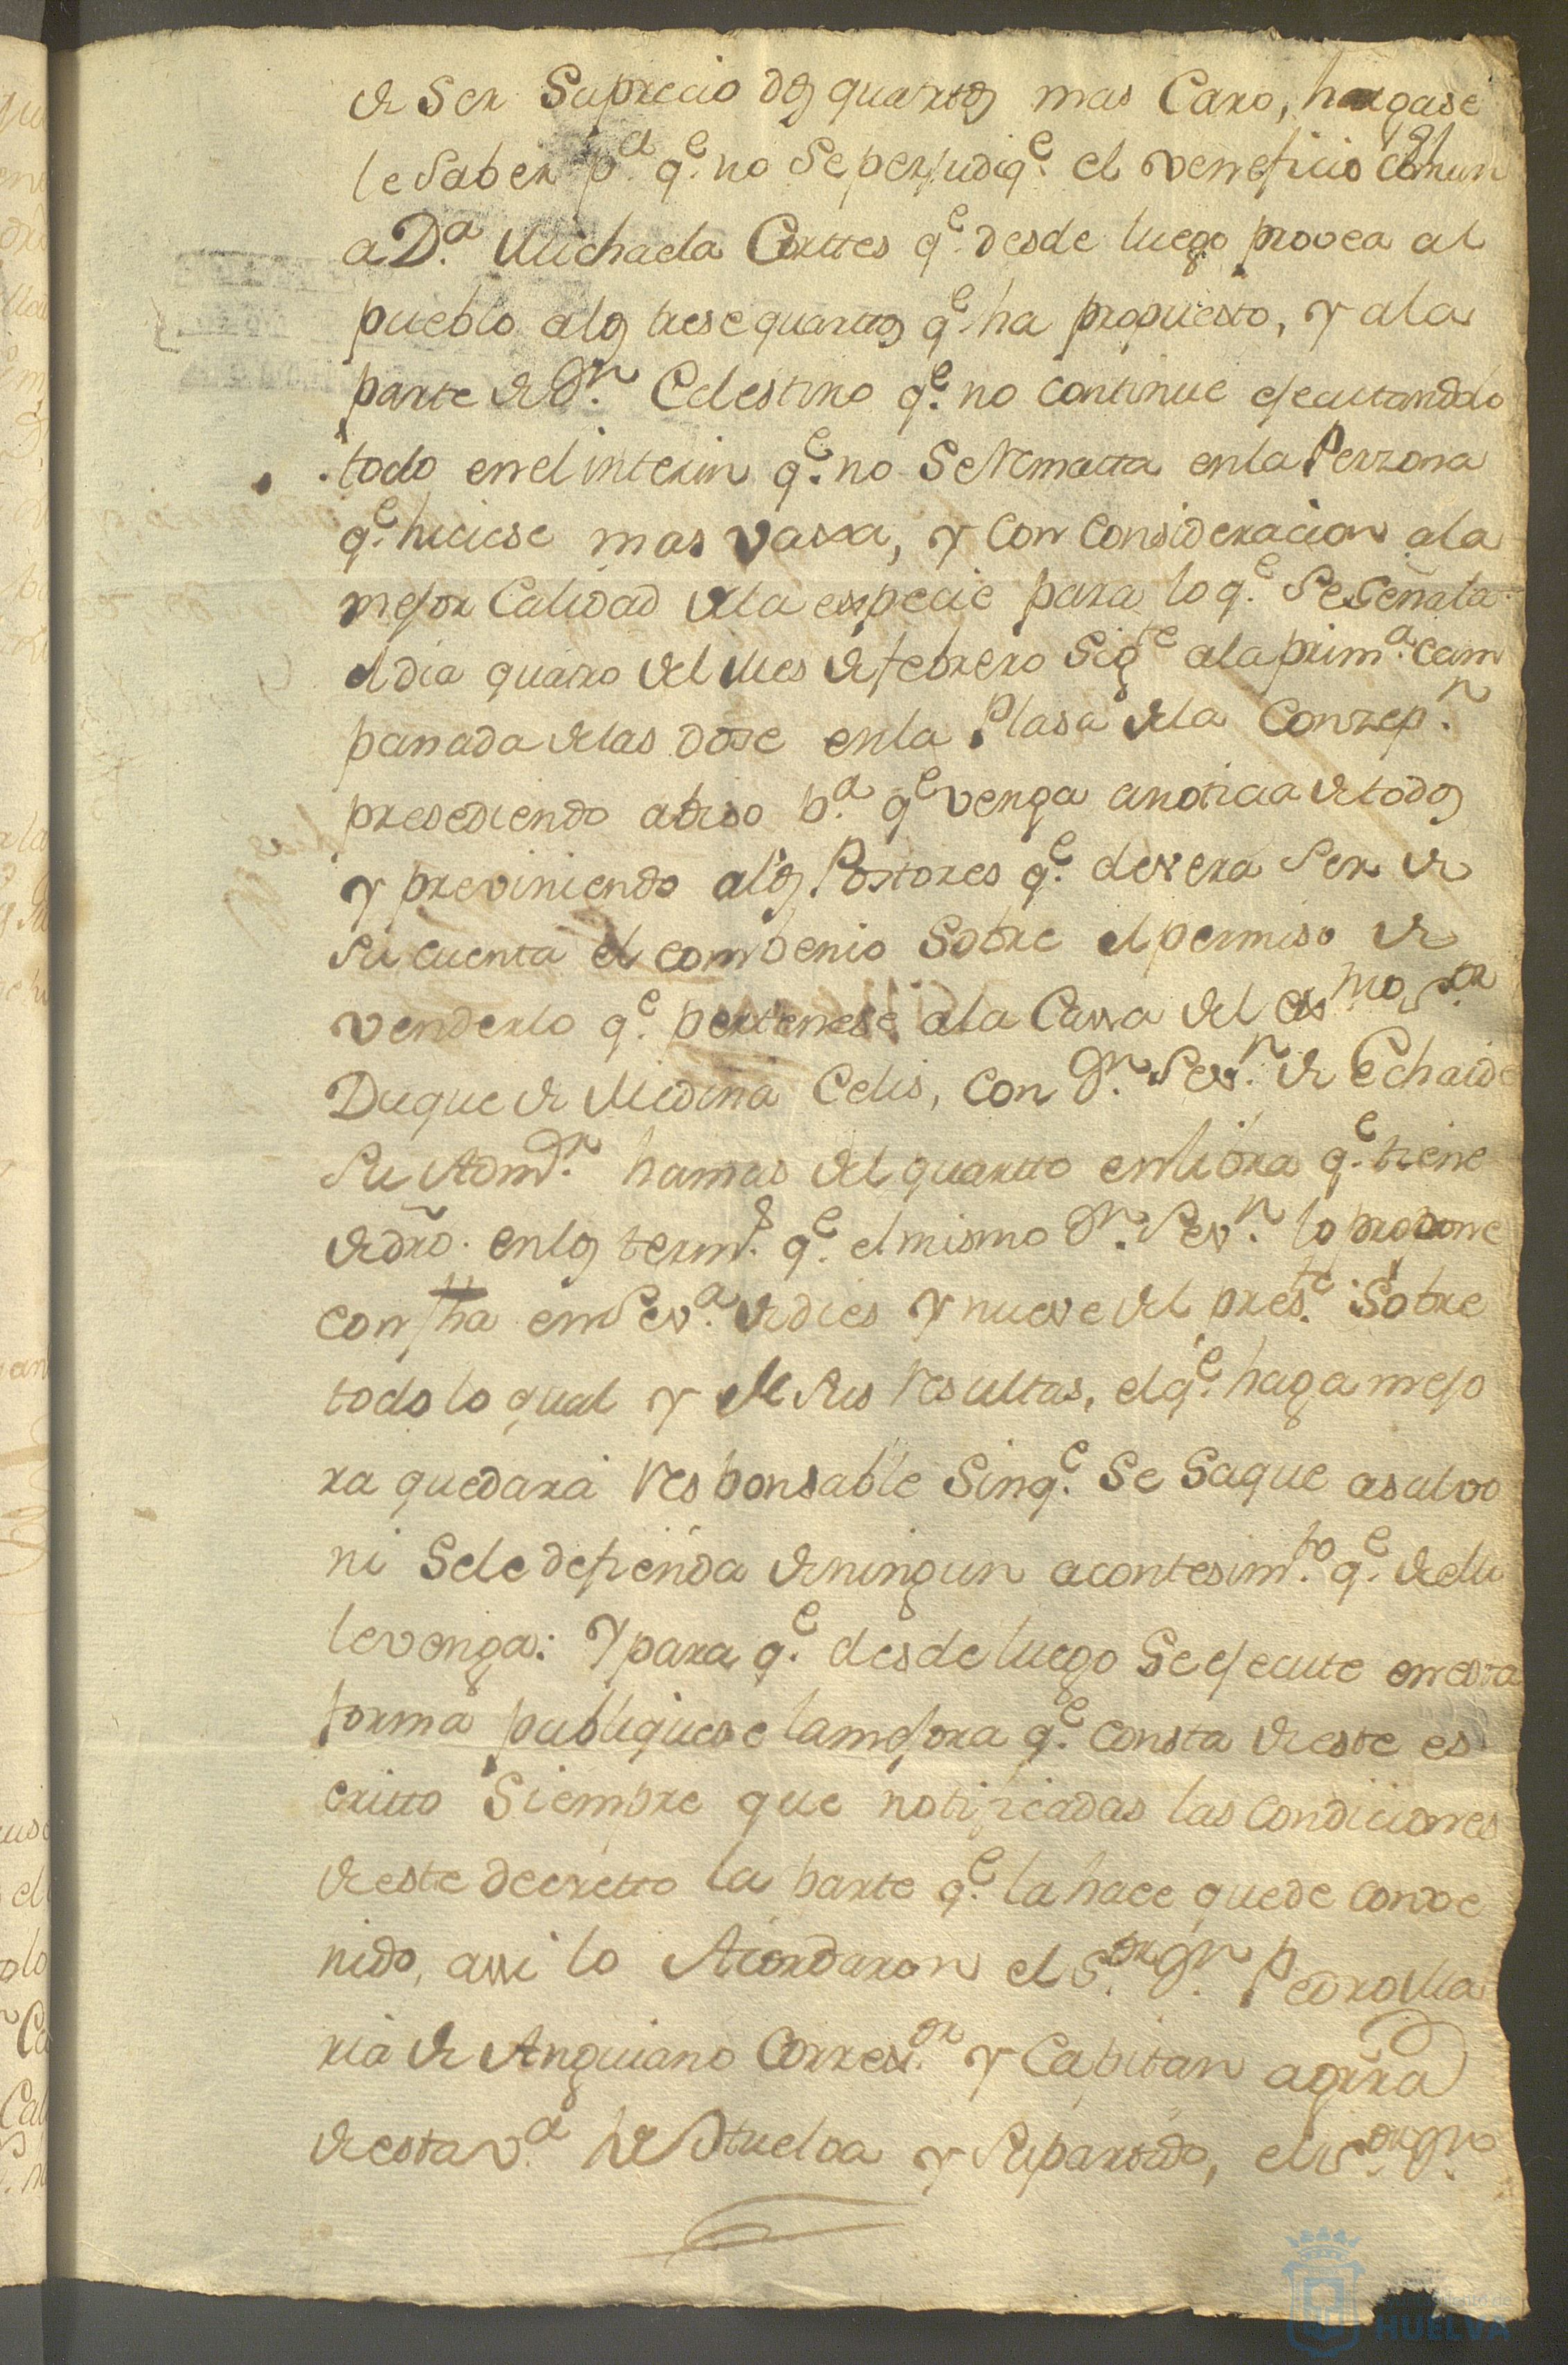 de Ser Su precio dos quartos mas Caro, hagase
le Saber p.a q.e no Se perjudiq.e el veneficio comun
191
a D.a Michaela Corttes q.e desde luego provea al
pueblo a los trese quarttos q.e ha propuesto, y a la
parte de D.n Celestino q.e no continue ejecutandolo
todo en el interin q.e no Se Rematta en la Perzona
q.e hiciese mas vaxa, y con consideracion a la
mejor Calidad de la expecie para lo q.e Se Señala
el dia quatro del Mes de febrero Sig.te a la prim.a cam
panada de las dose en la Plasa de la Conzep.n
presediendo abiso p.a q.e venga a noticia de todos
y previniendo a los Postores q.e devera Ser de
Su cuenta el combenio Sobre el permiso de
venderlo q.e pertenese a la Cassa del Ex.mo S.or
Duque de Medina Celis, con D.n Sev.n de Echaide
Su Adm.or ha mas del quartto en libra q.e tiene
de dro. en los term.s q.e el mismo D.n Sev.n lo propone
con fha en Sev.a de dies y nueve del pres.te Sobre
todo lo qual y de Sus Resultas, el q.e haga mejo
ra quedará Responsable Sin q.e Se Saque a salvo
ni Se le defienda de ningun acontesim.to q.e de ello
le venga: Y para q.e desde luego Se ejecute en esta
forma publiquese la mejora q.e consta de este es
critto Siempre que notificadas las condiciones
de este decretto la parte q.e la hace quede conve
nido, assi lo Acordaron el S.or D.n Pedro Ma
ria de Anguiano Correx.or y Capitan a grra
de esta v.a de Huelva y Su partido, el S.or D.n
HUELVA